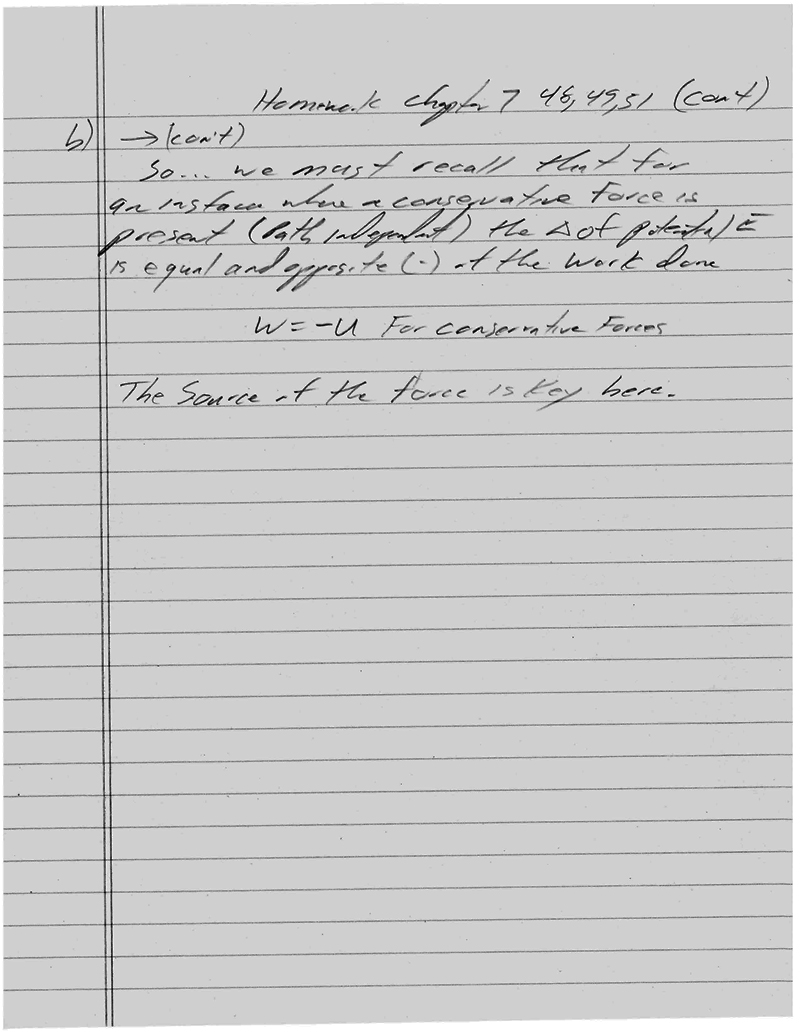 Homework chapter 7 48,49,51 (con't)
b) → (con't)
So... we must recall that for
an instance where a conservative Force is
present (Path independent) the Δ of potential E
is equal and opposite (-) of the work done
W = -U For conservative Forces
The Source of the force is Key here.